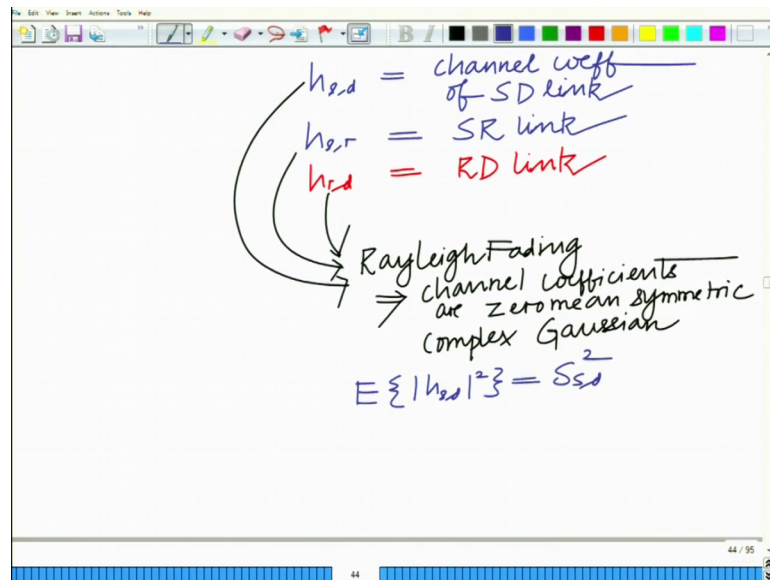 File Edit View Insert Actions Tools Help
B I
h_{s,d} = channel coeff
of SD link
h_{s,r} = SR link
h_{r,d} = RD link
Rayleigh Fading
⇒ channel coefficients
are zero mean symmetric
complex Gaussian
E{|h_{sd}|²} = δ_{s,d}²
44 / 95
44